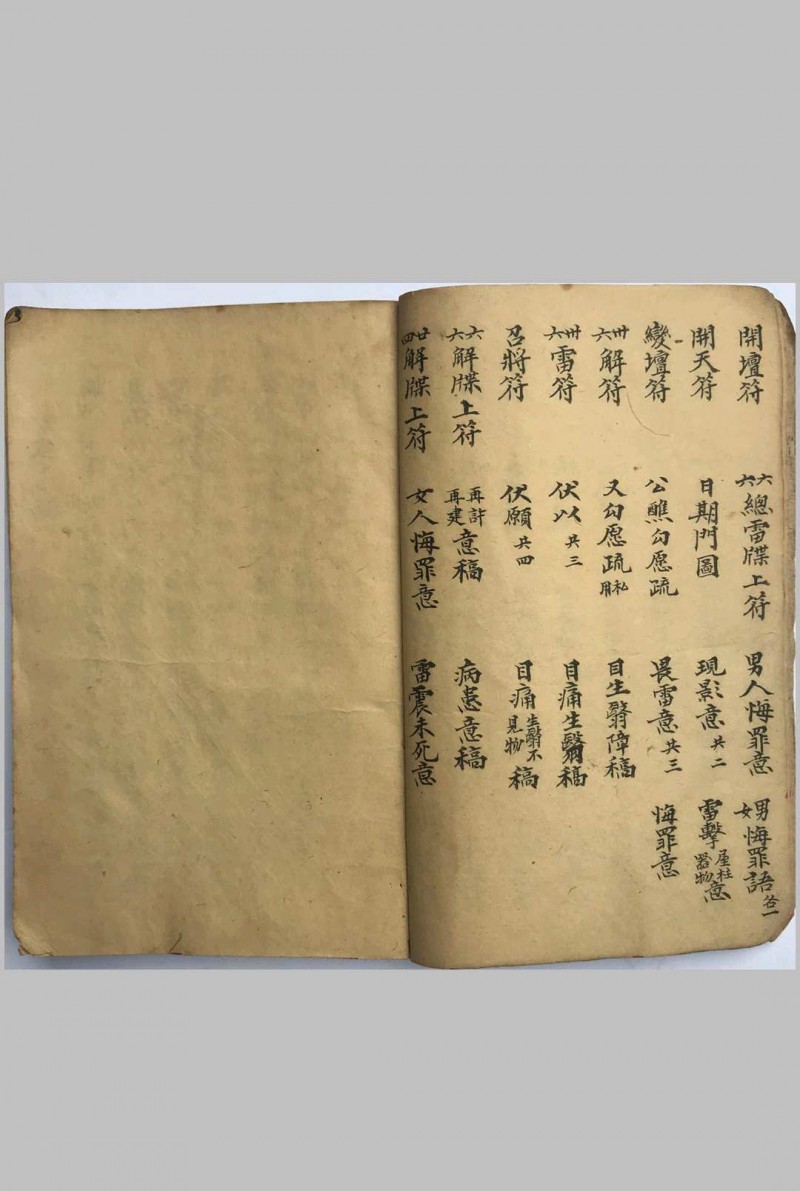 開壇符
開天符
變壇符
卅六解符
卅六雷符
召將符
六六解牒上符
廿四解牒上符
六六總雷牒上符
日期門圖
公醮勾愿疏
又勾愿疏私用
伏以共三
伏願共四
再許再建意稿
女人悔罪意
男人悔罪意
現影意共二
畏雷意共三
目生翳障稿
目痛生翳稿
目痛生翳不見物稿
病患意稿
雷震未死意
男女悔罪語各一
雷擊屋柱器物意
悔罪意